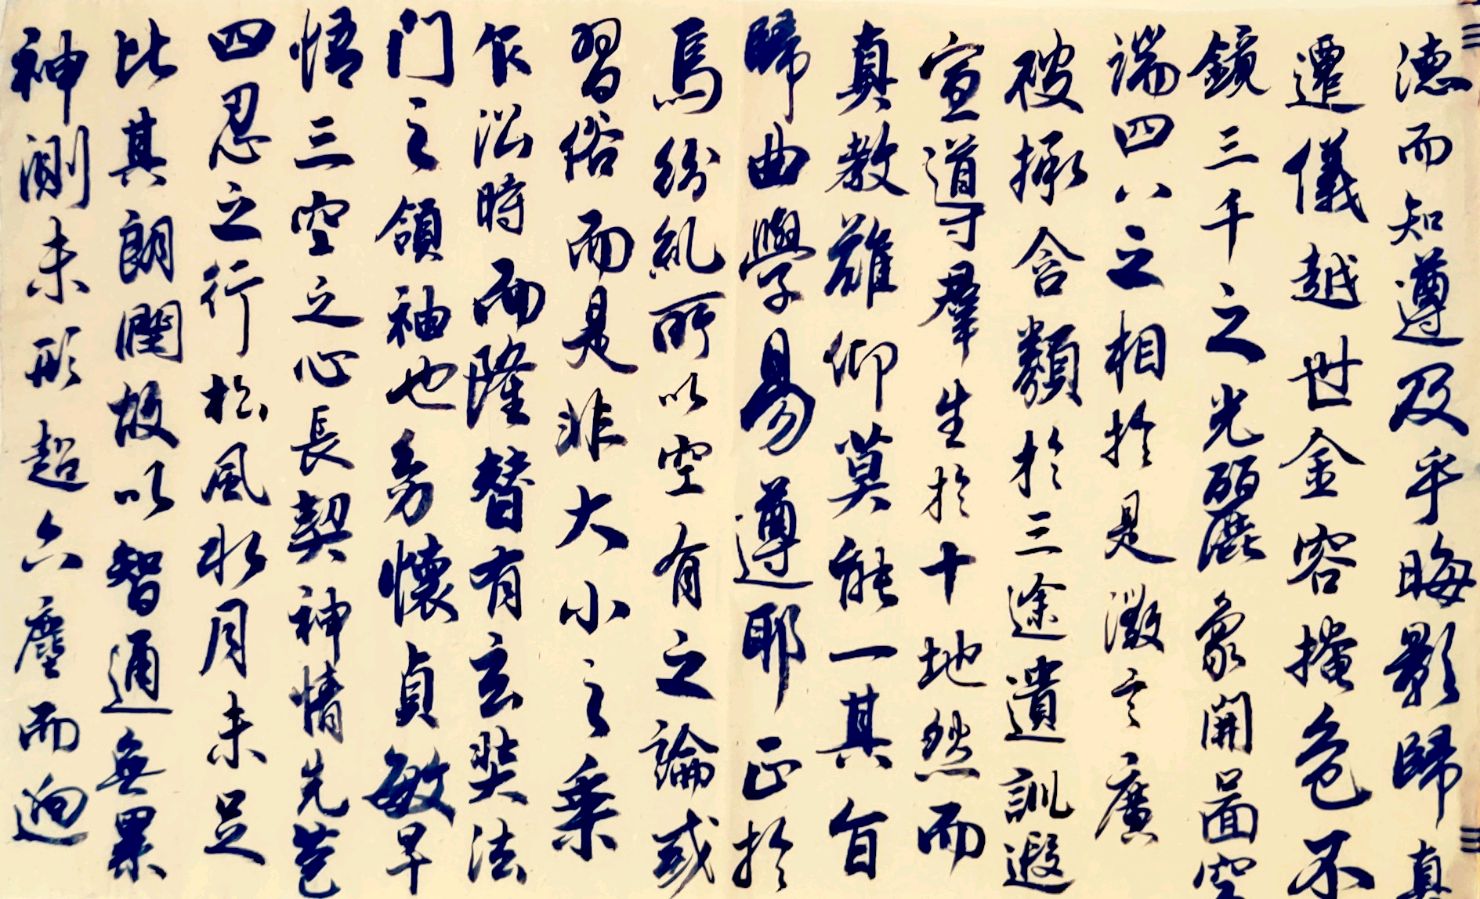 德而知遵及乎晦影歸真
遷儀越世金容掩色不
鏡三千之光麗象開圖空
端四八之相於是微言廣
被拯含類於三途遺訓遐
宣導羣生於十地然而
真教難仰莫能一其旨
歸曲學易遵耶正於
焉紛糺所以空有之論或
習俗而是非大小之乘
乍沿時而隆替有玄奘法
門之領袖也幼懷貞敏早
悟三空之心長契神情先苞
四忍之行松風水月未足
比其朗潤故以智通無累
神測未形超六塵而迥